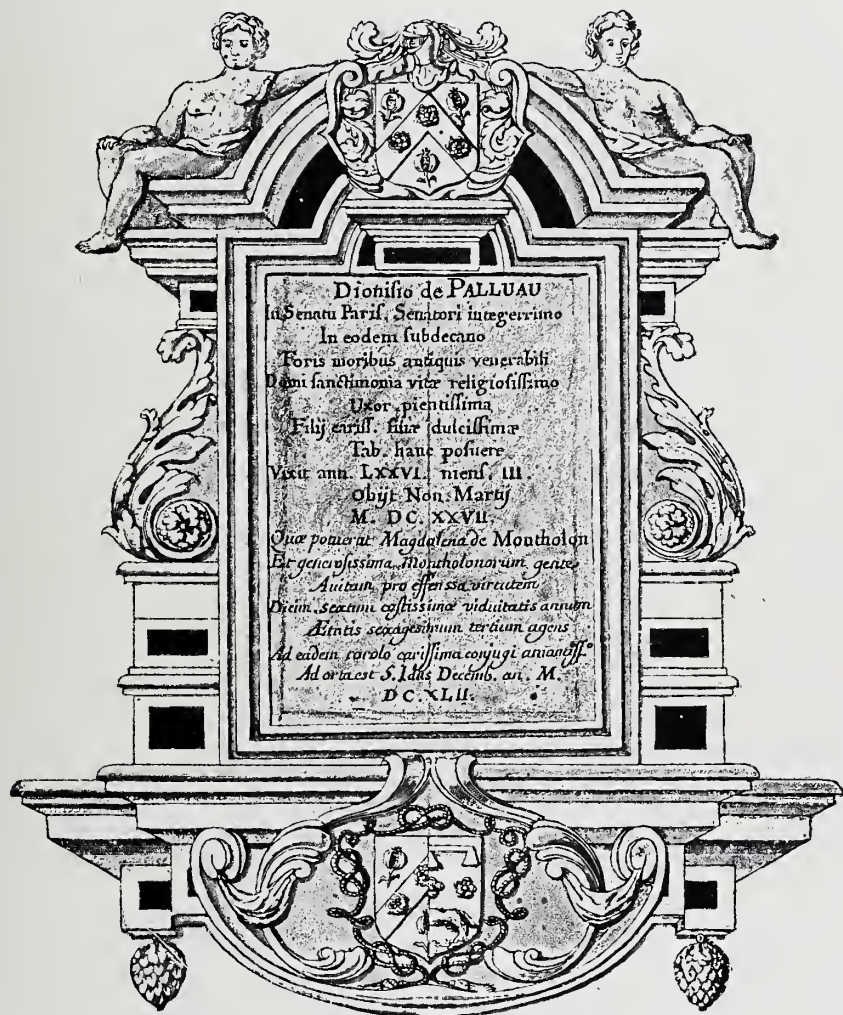 Dionisio de PALLUAU
In Senatu Parisſ. Senatori integerrimo
In eodem ſubdecano
Foris moribus antiquis venerabili
Domi ſanctimonia vitæ religioſiſſimo
Uxor pientiſſima
Filij cariſſ. filiæ dulciſſimæ
Tab. hanc poſuere
Vixit ann. LXXVI. menſ. III.
Obijt Non. Martij
M. DC. XXVII.
Quæ poſuerat Magdalena de Montholon
Et generoſissima Montholonorum gente
Avitam pro efferssa virtutem
Dicim. sextum caſtissimæ viduitatis annum
Ætatis sexagesimum tertium agens
Ad eadem corolo cariſſima conjugi amantiſſ.º
Ad orta est S. Idus Decemb. an. M.
DC. XLII.